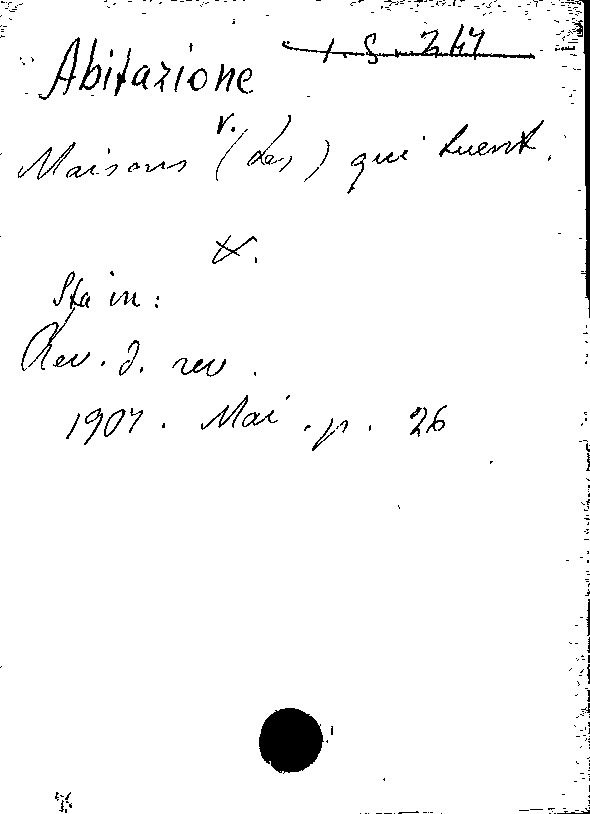 Abitazione
v.
Maisons (des) qui tuent.
X.
Sta in:
Rev. d. rev.
1907. Mai. p. 26